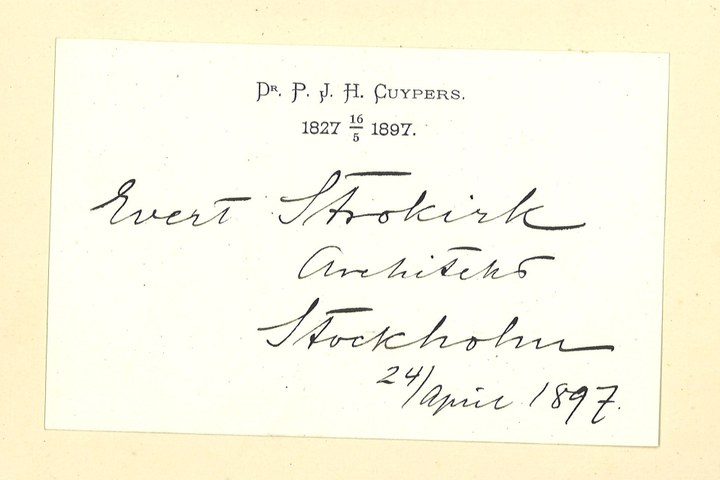 Dr. P. J. H. Cuypers.
1827 16/5 1897.
Evert Strokirk
Architekt
Stockholm
24/April 1897.